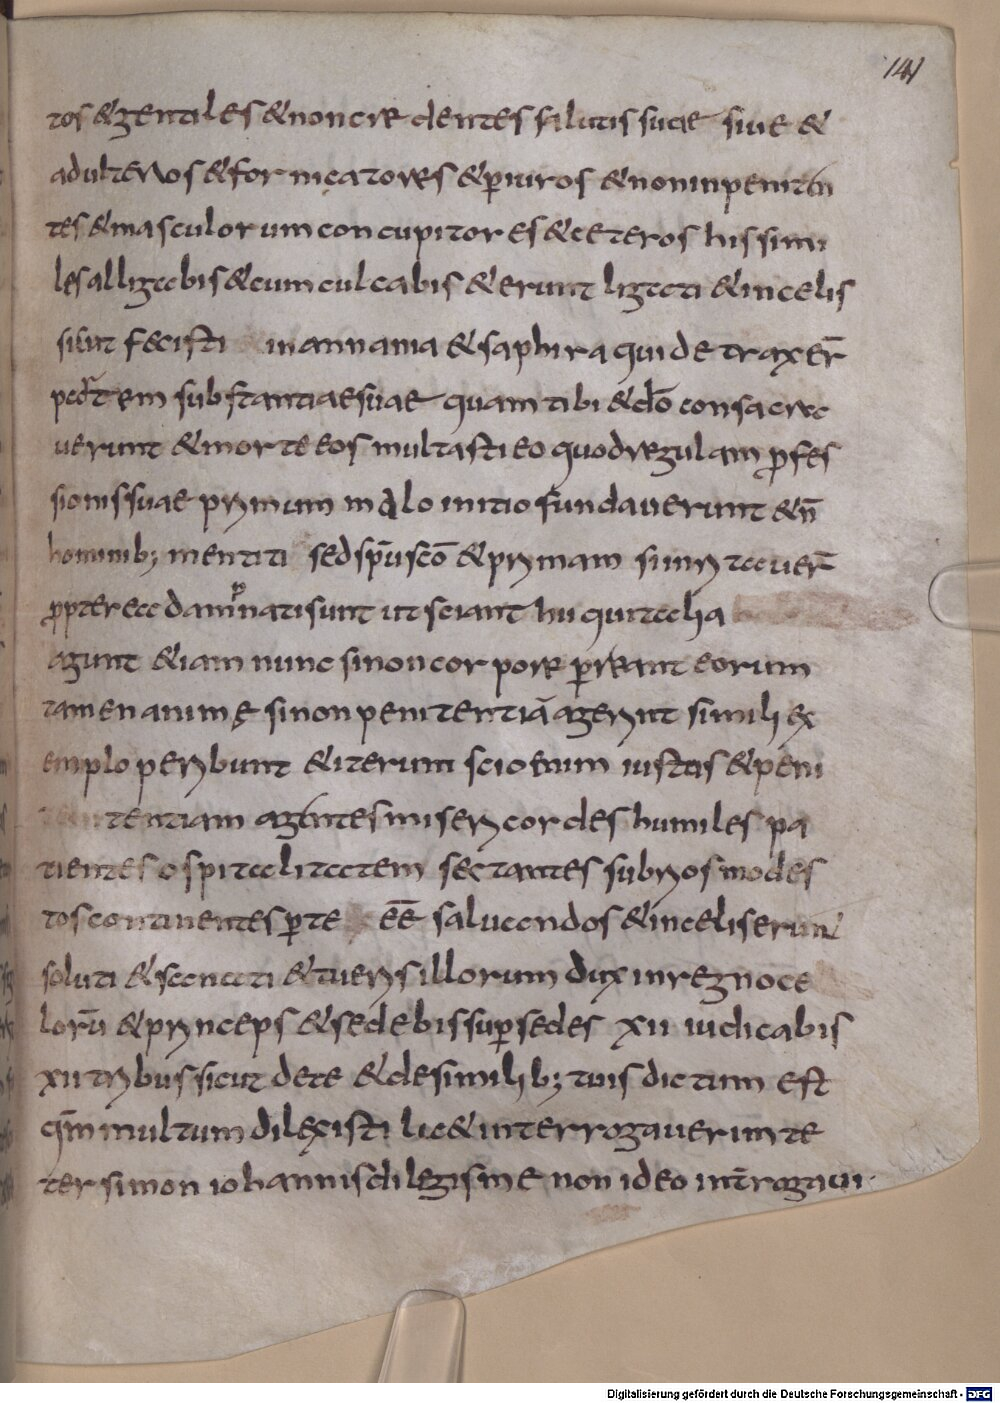 141
tos & gentiles & non credentes salutis suae siue &
adulteros & fornicatores & p̄iuros & non inpeniten
tes & masculorum concupitores & ceteros his simi
les alligabis & cum culcabis & erunt ligati & in celis
sicut fecisti in annania & saphira qui detraxer̄
partem substantiae suae quam tibi & do͞ consacra
uerunt & morte eos multasti eo quod regulam ꝓfes
sionis suae prymum in dolo initio fundauerunt & n̄
hominib; mentiti sed sp̄u sc̄o & prymam simrytauer̄
ꝓpterea damnati sunt ut sciant hii qui talia
agunt & iam nunc si non corpore p̄reant eorum
tamen animę si non penitentiā agerynt simili ex
emplo perybunt & iterum scio enim iustos & peni
tentiam agentes miserycordes humiles pa
tientes ospitalitatem sectantes subryos modes
tos continentes p̄ te ee͞ saluandos & in celis erunt
soluti & sanati & tu erys illorum dux in regno ce
lorū & prynceps & sedebis sup̄ sedes xii iudicabis
xii trybus sicut de te & de similib; tuis dictum est
qm̄ multum dilexisti lic& interrogauerim te
ter simon iohannis diligis me non ideo int̄rogaui
Digitalisierung gefördert durch die Deutsche Forschungsgemeinschaft - DFG